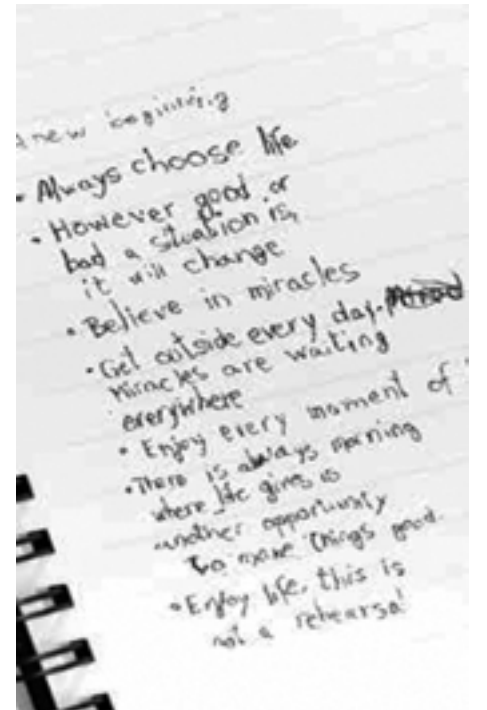 A new beginning
• Always choose life
• However good or
bad a situation is,
it will change
• Believe in miracles
• Get outside every day.
miracles are waiting
everywhere
• Enjoy every moment of
• There is always morning
where life gives is
another opportunity
to make things good.
• Enjoy life, this is
not a rehearsal